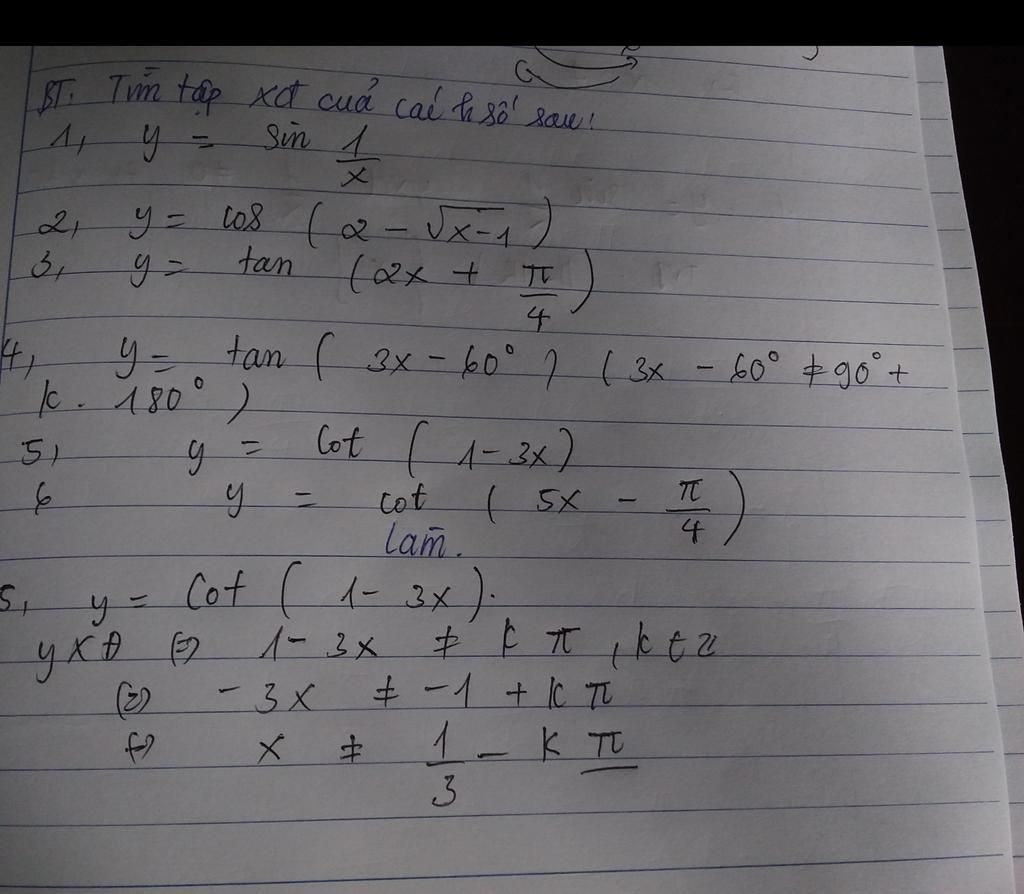 BT: Tìm tập xđ cuả các h số sau:
1, y = sin 1/x
2, y = cos ( 2 - √x-1 )
3, y = tan ( 2x + π/4 )
4, y = tan ( 3x - 60° ) ( 3x - 60° ≠ 90° +
k . 180° )
5, y = Cot ( 1 - 3x )
6 y = cot ( 5x - π/4 )
Làm.
5, y = Cot ( 1 - 3x ).
y XĐ (=) 1 - 3x ≠ k π , k ∈ z
(=) - 3x ≠ -1 + k π
(=) x ≠ 1/3 - k π